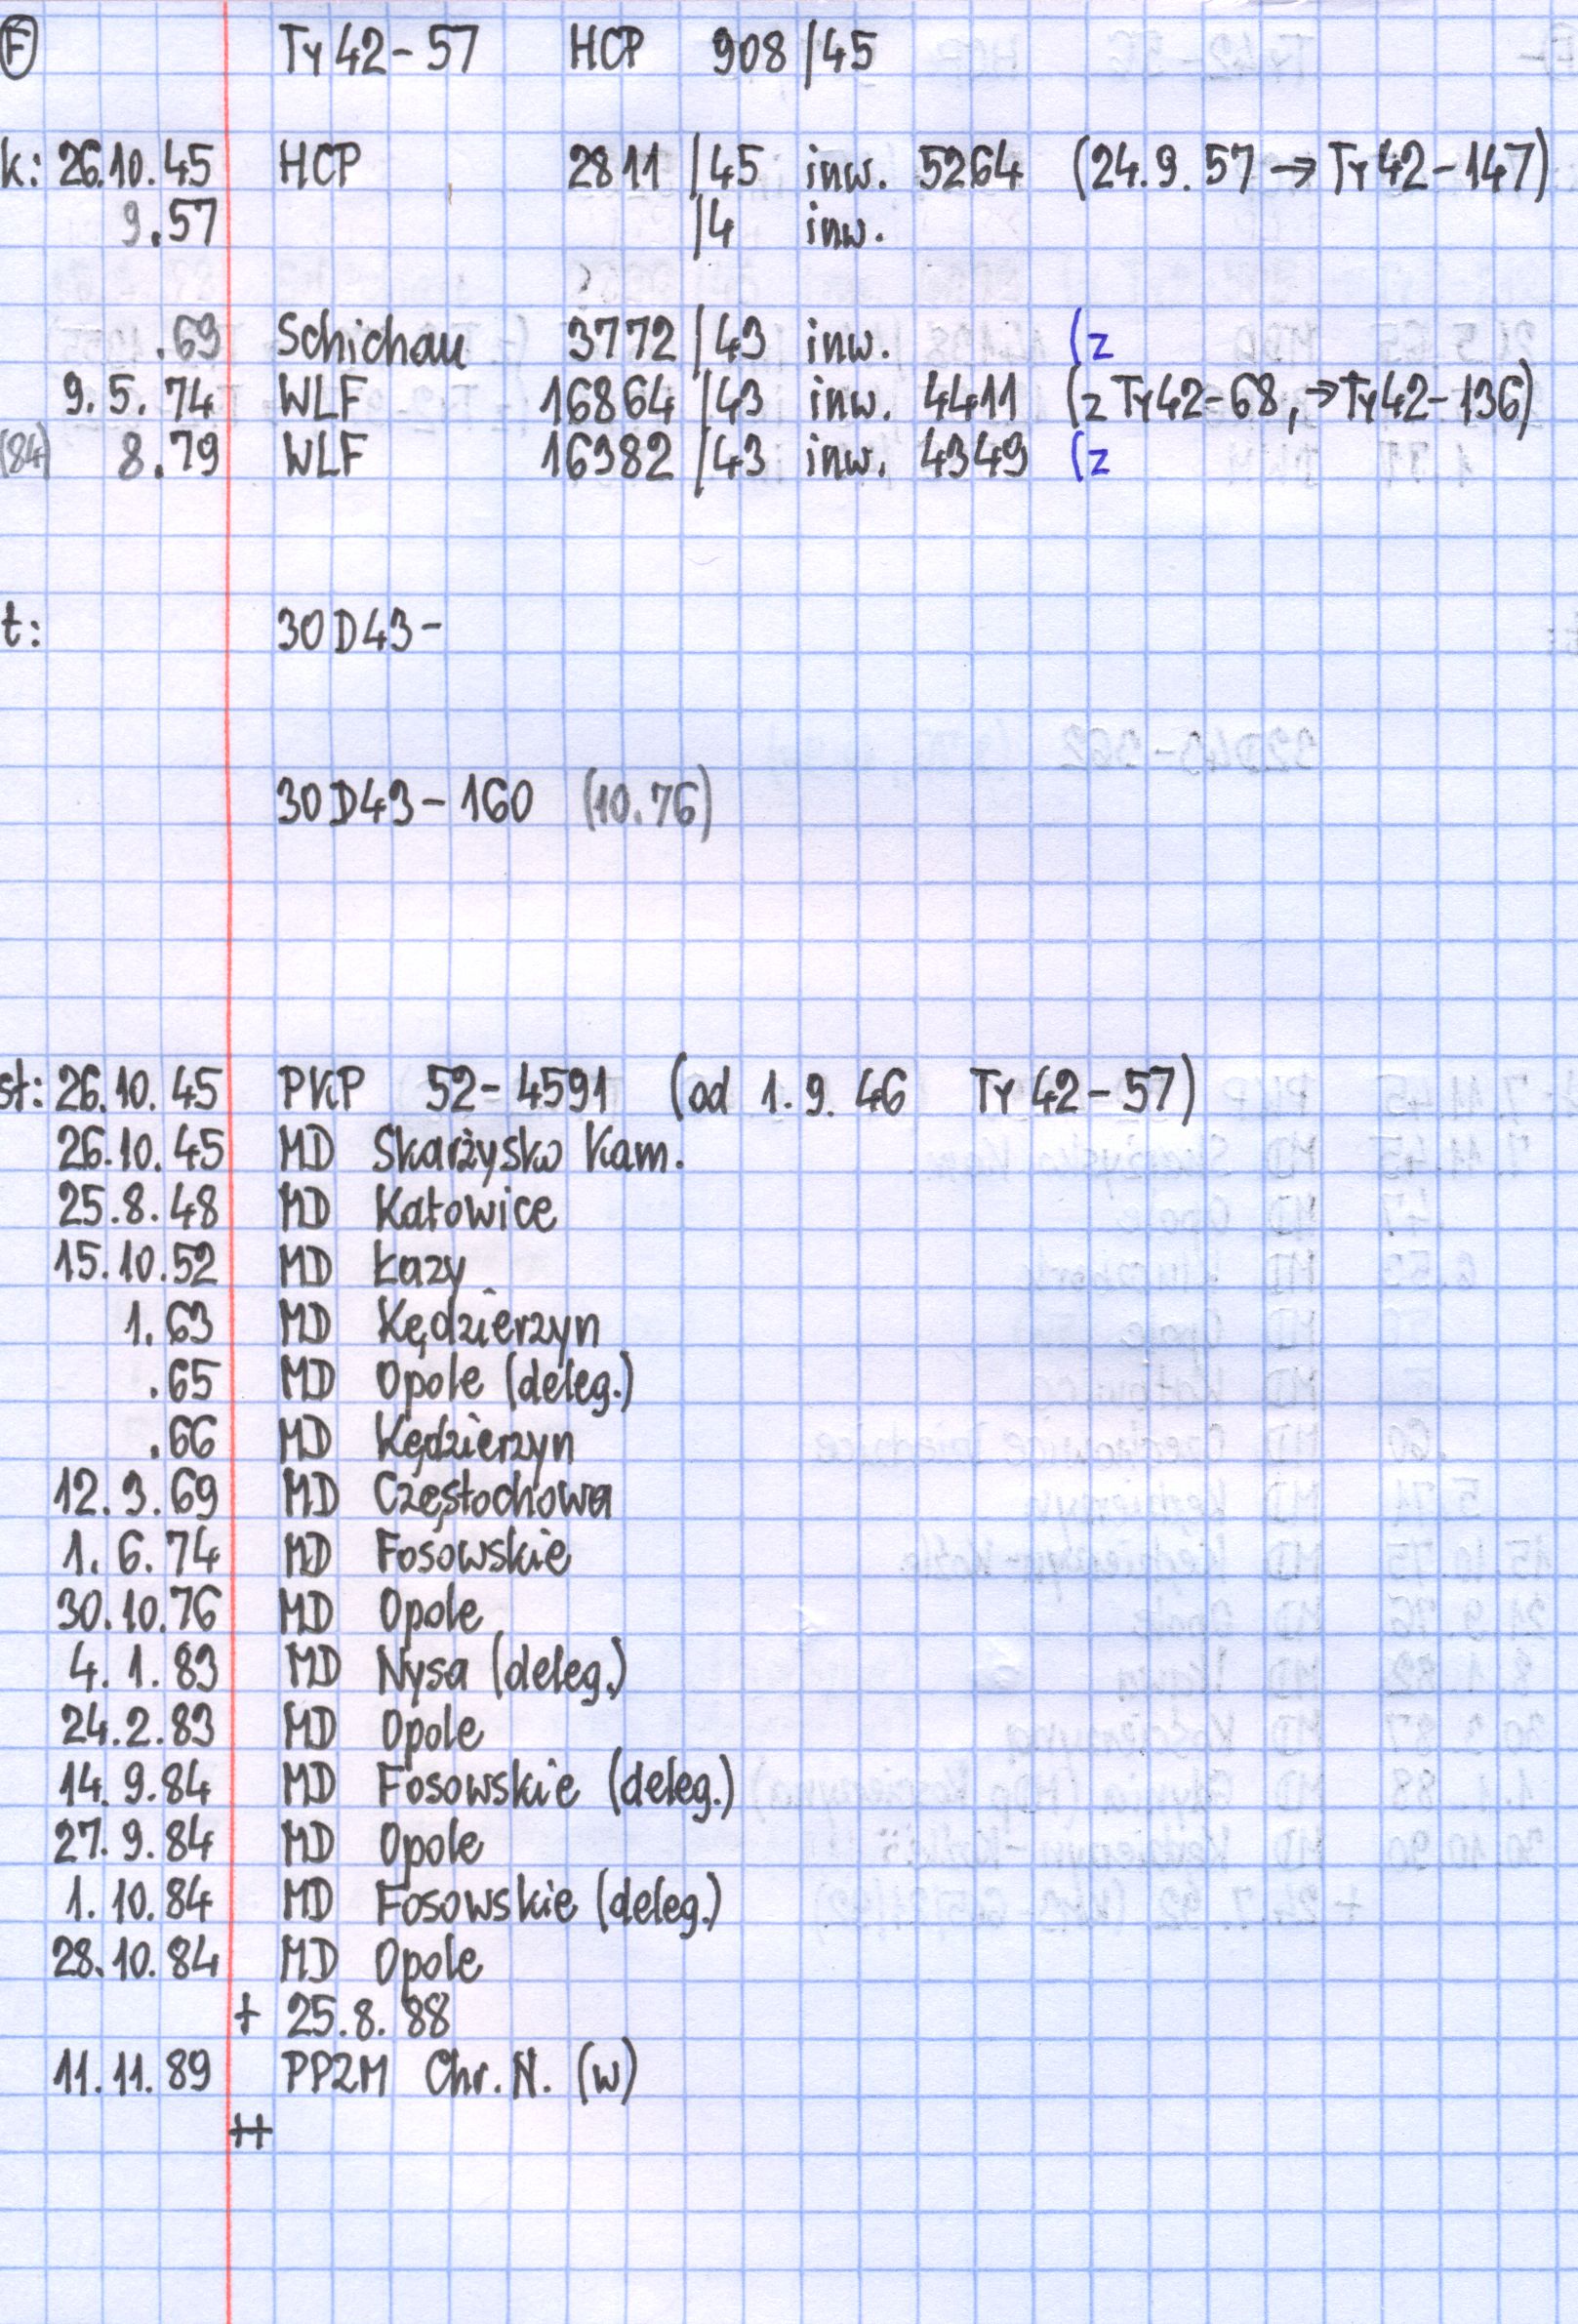 F Ty42-57 HCP 908/45
k: 26.10.45 HCP 2811/45 inw. 5264 (24.9.57 → Ty42-147)
9.57 /4 inw.
.69 Schichau 3772/43 inw. (z
9.5.74 WLF 16864/43 inw. 4411 (z Ty42-68, → Ty42-136)
(84) 8.79 WLF 16382/43 inw. 4349 (z
t: 30D43-
30D43-160 (10.76)
st: 26.10.45 PKP 52-4591 (od 1.9.46 Ty42-57)
26.10.45 MD Skarżysko Kam.
25.8.48 MD Katowice
15.10.52 MD Łazy
1.63 MD Kędzierzyn
.65 MD Opole (deleg.)
.66 MD Kędzierzyn
12.3.69 MD Częstochowa
1.6.74 MD Fosowskie
30.10.76 MD Opole
4.1.83 MD Nysa (deleg.)
24.2.83 MD Opole
14.9.84 MD Fosowskie (deleg.)
27.9.84 MD Opole
1.10.84 MD Fosowskie (deleg.)
28.10.84 MD Opole
+ 25.8.88
11.11.89 PPZM Chr.N. (w)
++